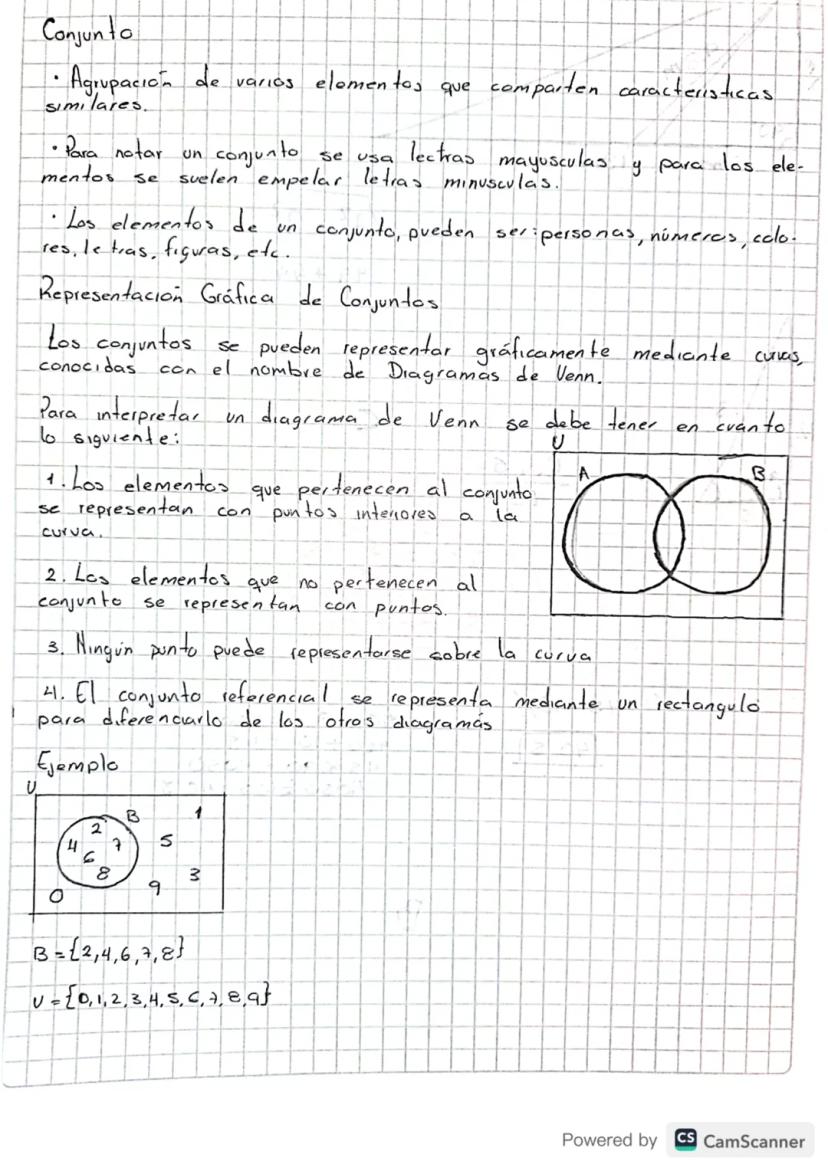 Conjunto
· Agrupación de varios elementos que comparten caracteristicas
similares.
· Para notar un conjunto se usa lectras mayusculas y para los ele-
mentos se suelen empelar letras minusculas.
· Los elementos de un conjunto, pueden ser: personas, números, colo-
res, letras, figuras, etc.
Representación Gráfica de Conjuntos
Los conjuntos se pueden representar gráficamente mediante curvas,
conocidas con el nombre de Diagramas de Venn.
Para interpretar un diagrama de Venn se debe tener en cuanto
lo siguiente:
U
A B
1. Los elementos que pertenecen al conjunto
se representan con puntos interiores a la
curva.
2. Los elementos que no pertenecen al
conjunto se representan con puntos.
3. Ningún punto puede representarse sobre la curva
4. El conjunto referencial se representa mediante un rectangulo
para diferenciarlo de los otros diagramás
Ejemplo
U
B 1
2
4 7 5
6
8 3
0 9
B = {2,4,6,7,8}
U = {0,1,2,3,4,5,6,7,8,9}
Powered by CS CamScanner